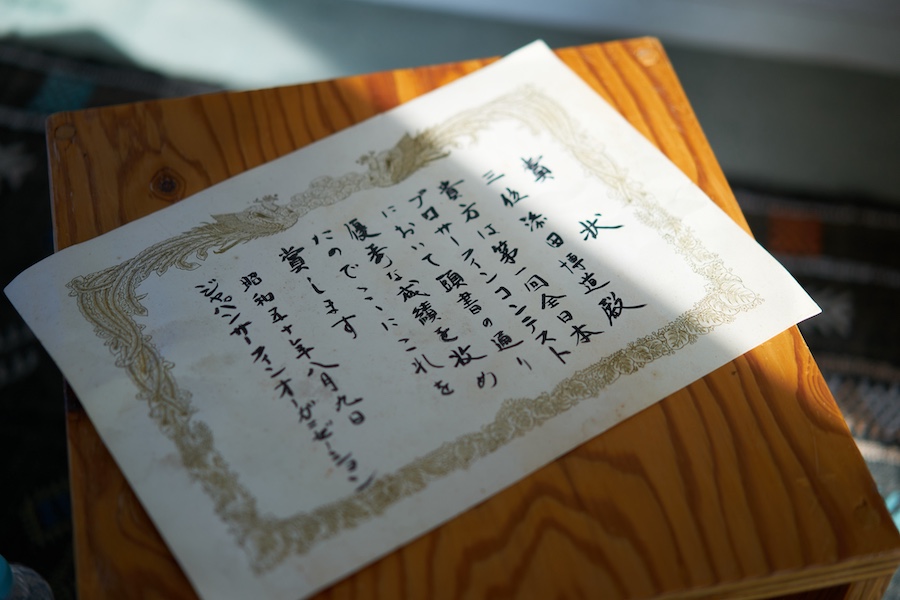 賞状
三位 添田博造殿
貴方は第一回全日本
プロサーフィンコンテスト
において頭書の通り
優秀な成績を收め
たのでここにこれを
賞します
昭和五十年八月九日
ジャパンサーフィンオーガニゼーション